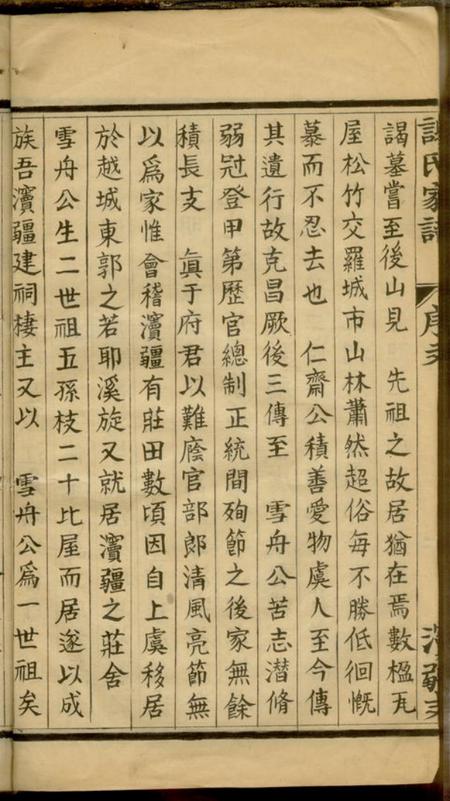 謁墓嘗至後山見　先祖之故居猶在焉數楹瓦
屋松竹交羅城市山林蕭然超俗每不勝低徊慨
慕而不忍去也　仁齋公積善愛物虞人至今傳
其遺行故克昌厥後三傳至　雪舟公苦志潛脩
弱冠登甲第歷官總制正統間殉節之後家無餘
積長支　眞于府君以難廕官部郎清風亮節無
以爲家惟會稽瀆疆有莊田數頃因自上虞移居
於越城東郭之若耶溪旋又就居瀆疆之莊舍
雪舟公生二世祖五孫枝二十比屋而居遂以成
族吾瀆疆建祠棲主又以　雪舟公爲一世祖矣